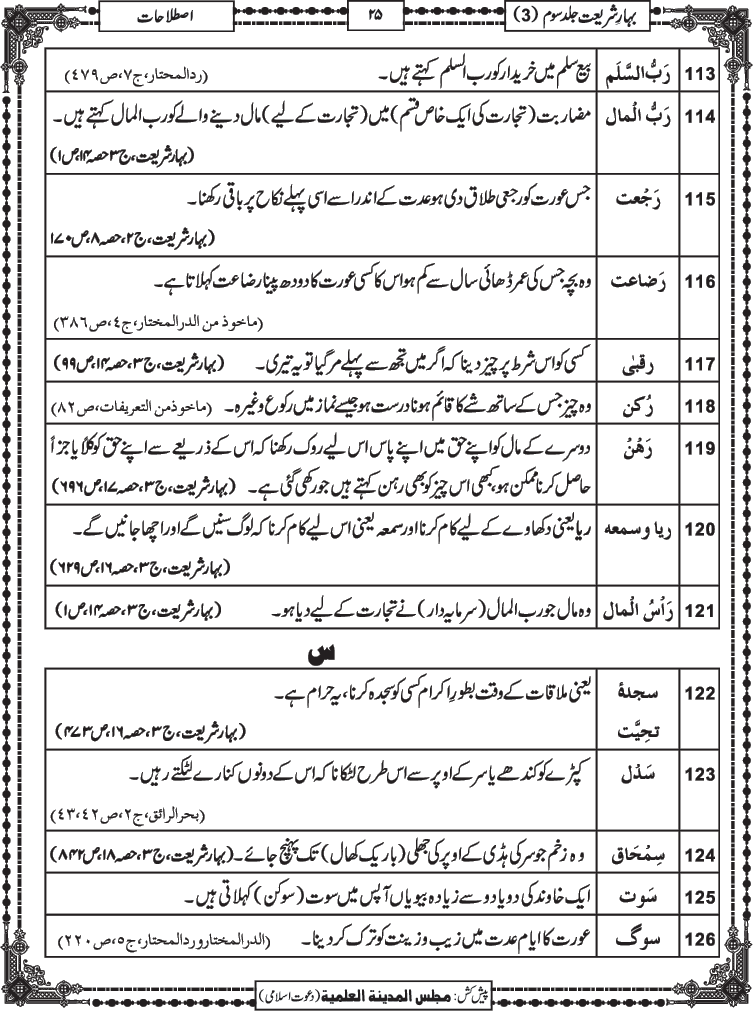 بہارِ شریعت جلد سوم (3) ۲۵ اصطلاحات
113 رَبُّ السَّلَم بیع سلم میں خریدار کو رب السلم کہتے ہیں۔ (ردالمحتار، ج۷، ص۴۷۹)
114 رَبُّ الْمال مضاربت (تجارت کی ایک خاص قسم) میں (تجارت کے لیے) مال دینے والے کو رب المال کہتے ہیں۔
(بہارِ شریعت، ج۳ حصہ ۱۴، ص۱)
115 رَجْعت جس عورت کو رجعی طلاق دی ہو عدت کے اندر اسے اسی پہلے نکاح پر باقی رکھنا۔
(بہارِ شریعت، ج۲، حصہ ۸، ص۱۷۰)
116 رَضاعت وہ بچہ جس کی عمر ڈھائی سال سے کم ہو اس کا کسی عورت کا دودھ پینا رضاعت کہلاتا ہے۔
(ماخوذ من الدرالمختار، ج۴، ص۳۸۶)
117 رقبیٰ کسی کو اس شرط پر چیز دینا کہ اگر میں تجھ سے پہلے مرگیا تو یہ تیری۔ (بہارِ شریعت، ج۳، حصہ ۱۴، ص۹۹)
118 رُکن وہ چیز جس کے ساتھ شے کا قائم ہونا درست ہو جیسے نماز میں رکوع وغیرہ۔ (ماخوذ من التعریفات، ص۸۲)
119 رَهْنُ دوسرے کے مال کو اپنے حق میں اپنے پاس اس لیے روک رکھنا کہ اس کے ذریعے سے اپنے حق کو کُلاً یا جزأً
حاصل کرنا ممکن ہو، کبھی اس چیز کو بھی رہن کہتے ہیں جو رکھی گئی ہے۔ (بہارِ شریعت، ج۳، حصہ ۱۷، ص۶۹۶)
120 ریا و سمعه ریا یعنی دکھاوے کے لیے کام کرنا اور سمعہ یعنی اس لیے کام کرنا کہ لوگ سنیں گے اور اچھا جانیں گے۔
(بہارِ شریعت، ج۳، حصہ ۱۶، ص۶۲۹)
121 رَاْسُ الْمال وہ مال جو رب المال (سرمایہ دار) نے تجارت کے لیے دیا ہو۔ (بہارِ شریعت، ج۳، حصہ ۱۴، ص۱)
س
122 سجدۂ یعنی ملاقات کے وقت بطورِ اکرام کسی کو سجدہ کرنا، یہ حرام ہے۔
تحیَّت (بہارِ شریعت، ج۳، حصہ ۱۶، ص۴۷۳)
123 سَدْل کپڑے کو کندھے یا سر کے اوپر سے اس طرح لٹکانا کہ اس کے دونوں کنارے لٹکتے رہیں۔
(بحرالرائق، ج۲، ص۴۲، ۴۳)
124 سِمْحَاق وہ زخم جو سر کی ہڈی کے اوپر کی جھلی (باریک کھال) تک پہنچ جائے۔ (بہارِ شریعت، ج۳، حصہ ۱۸، ص۸۴۲)
125 سَوت ایک خاوند کی دو یا دو سے زیادہ بیویاں آپس میں سوت (سوکن) کہلاتی ہیں۔
126 سوگ عورت کا ایامِ عدت میں زیب و زینت کو ترک کر دینا۔ (الدرالمختار و ردالمحتار، ج۵، ص۲۲۰)
پیش کش: مجلس المدینة العلمیة (دعوت اسلامی)